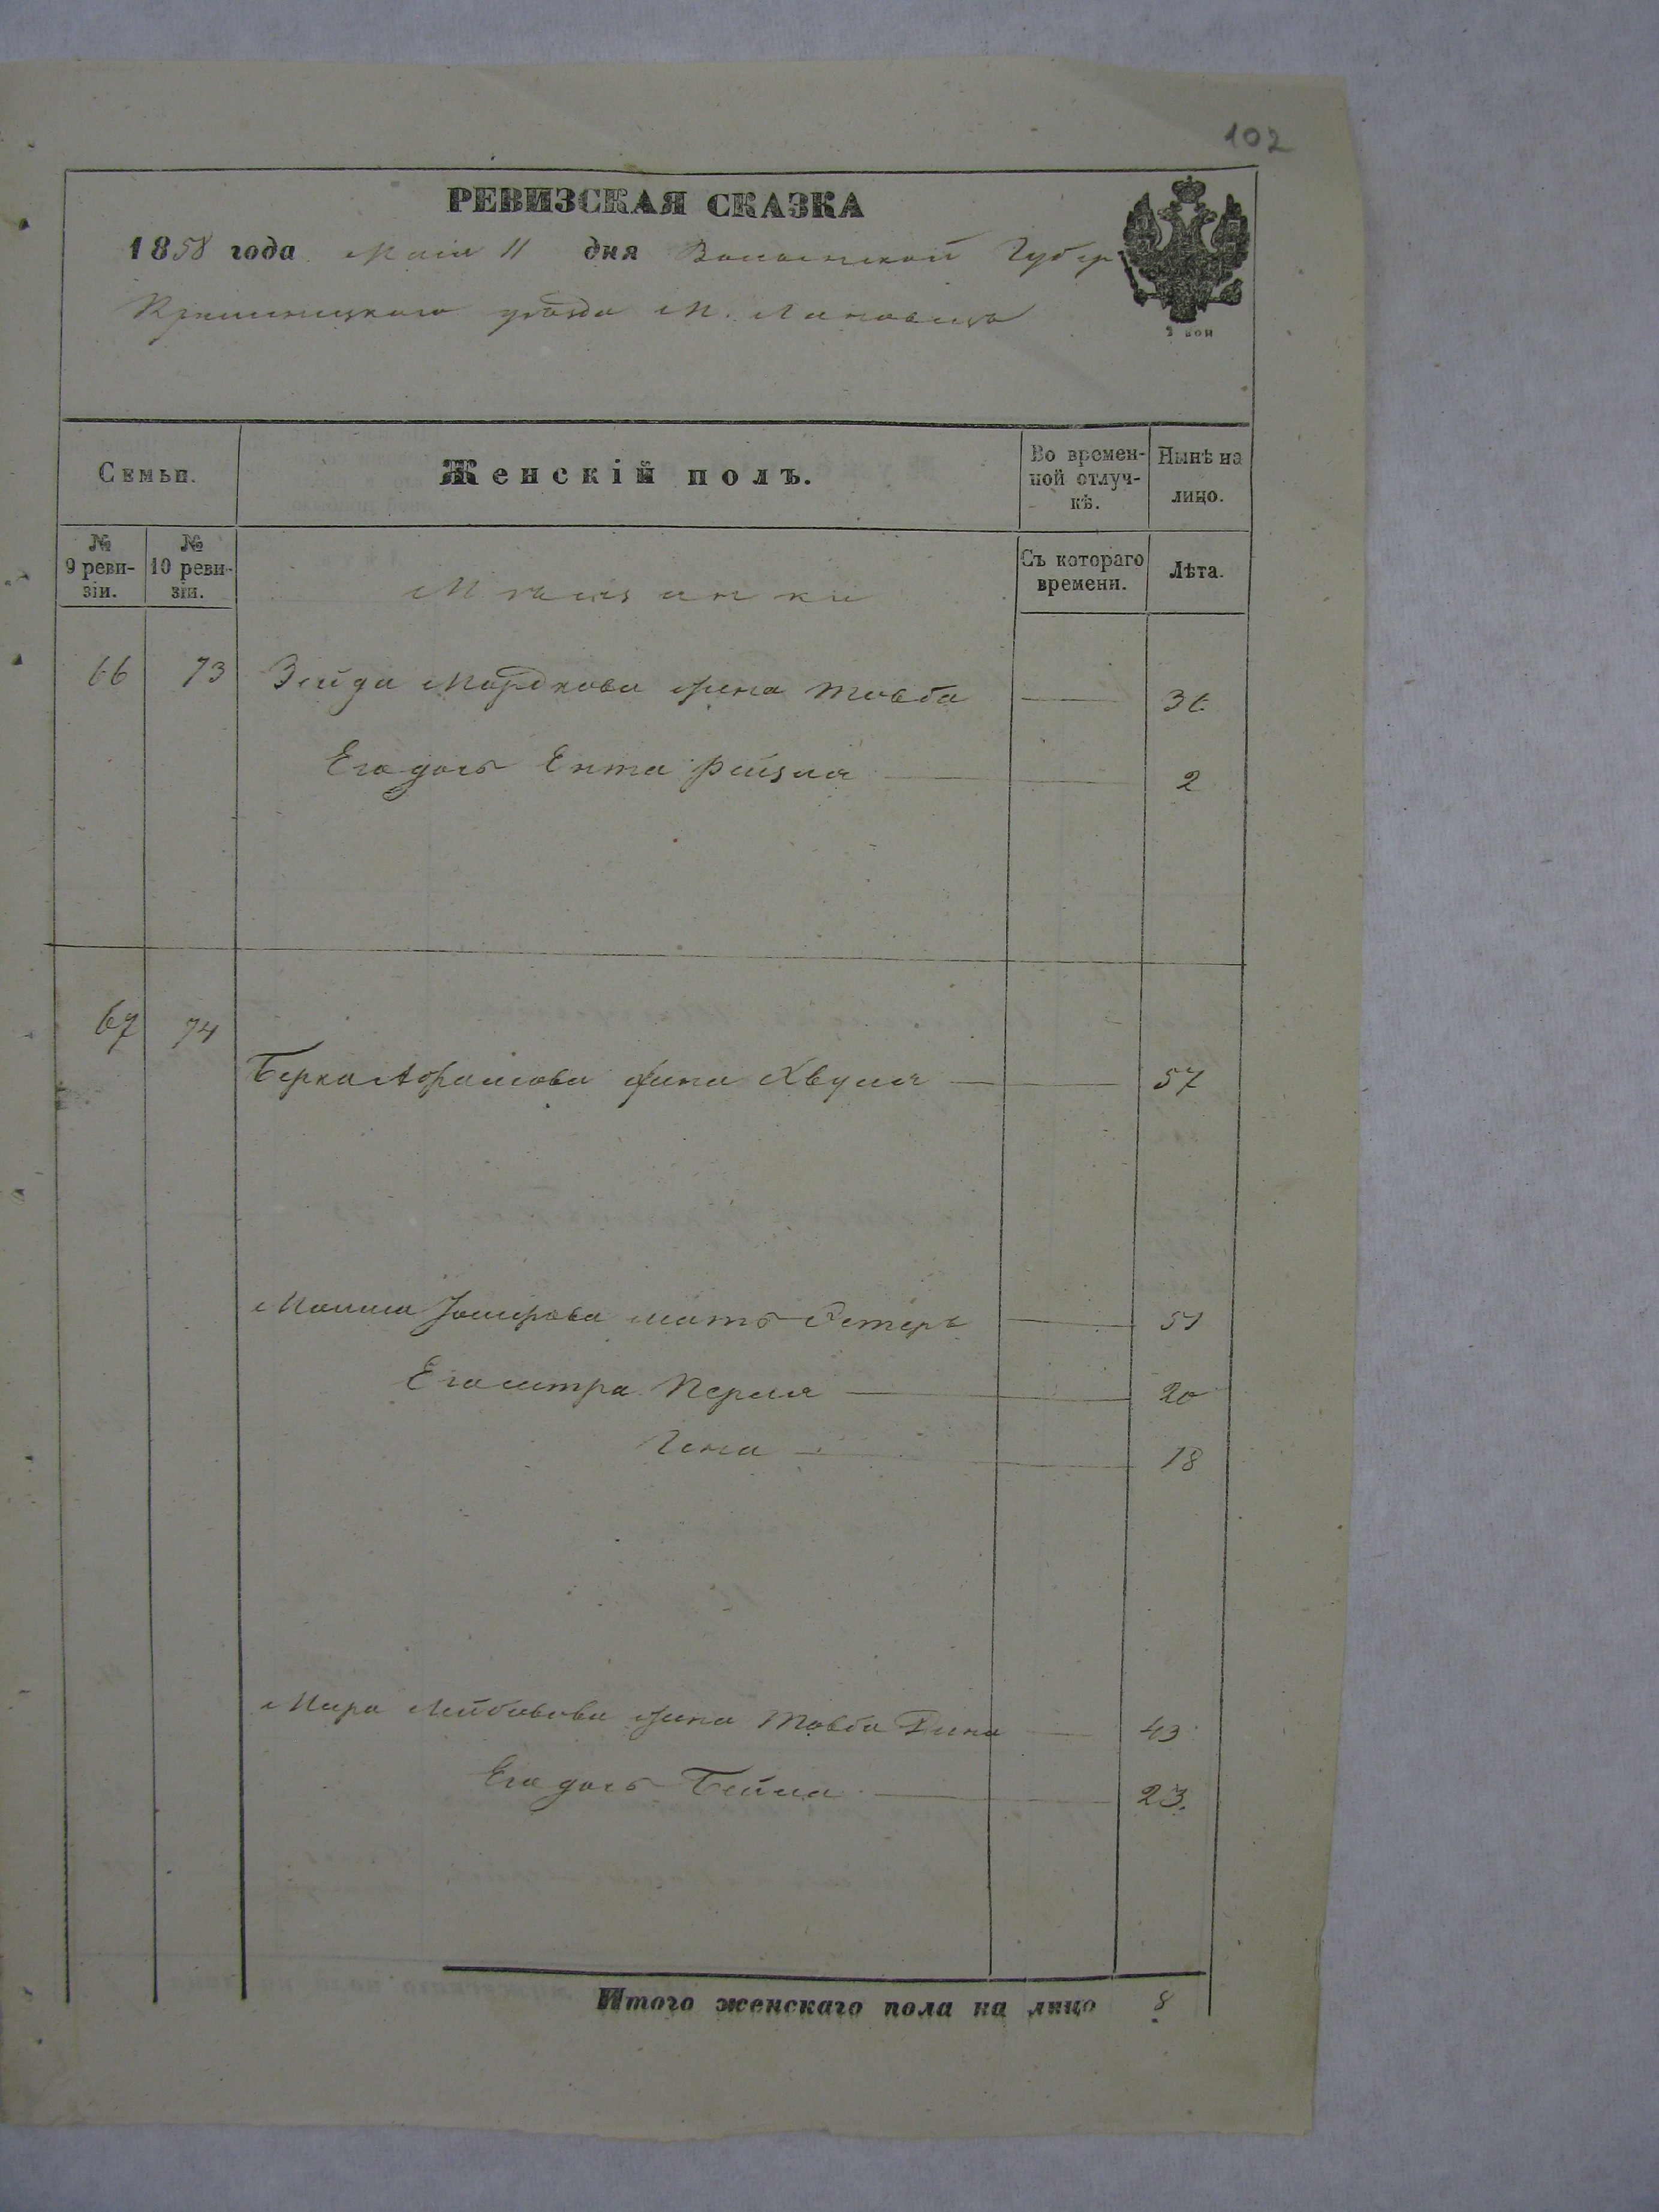 102
РЕВИЗСКАЯ СКАЗКА
1858 года Маія 11 дня Волынской Губер
Кременецкаго уѣзда М. Лановецъ
3 коп
Семьи.
Женскій полъ.
Во времен-
ной отлуч-
кѣ.
Нынѣ на
лицо.
№
9 реви-
зіи.
№
10 реви-
зіи.
Мѣщанки
Съ котораго
времени.
Лѣта.
66 73 Зейда Мордкова жена Товба 36
Его дочь Ента Рейзля 2
67 74
Берка Абрамова жена Хвуля 57
мать Естеръ 51
Его сестра Перля 20
Гена 18
Лейбовова жена Товба Дина 43
Его дочь Бейла 23.
Итого женскаго пола на лицо 8